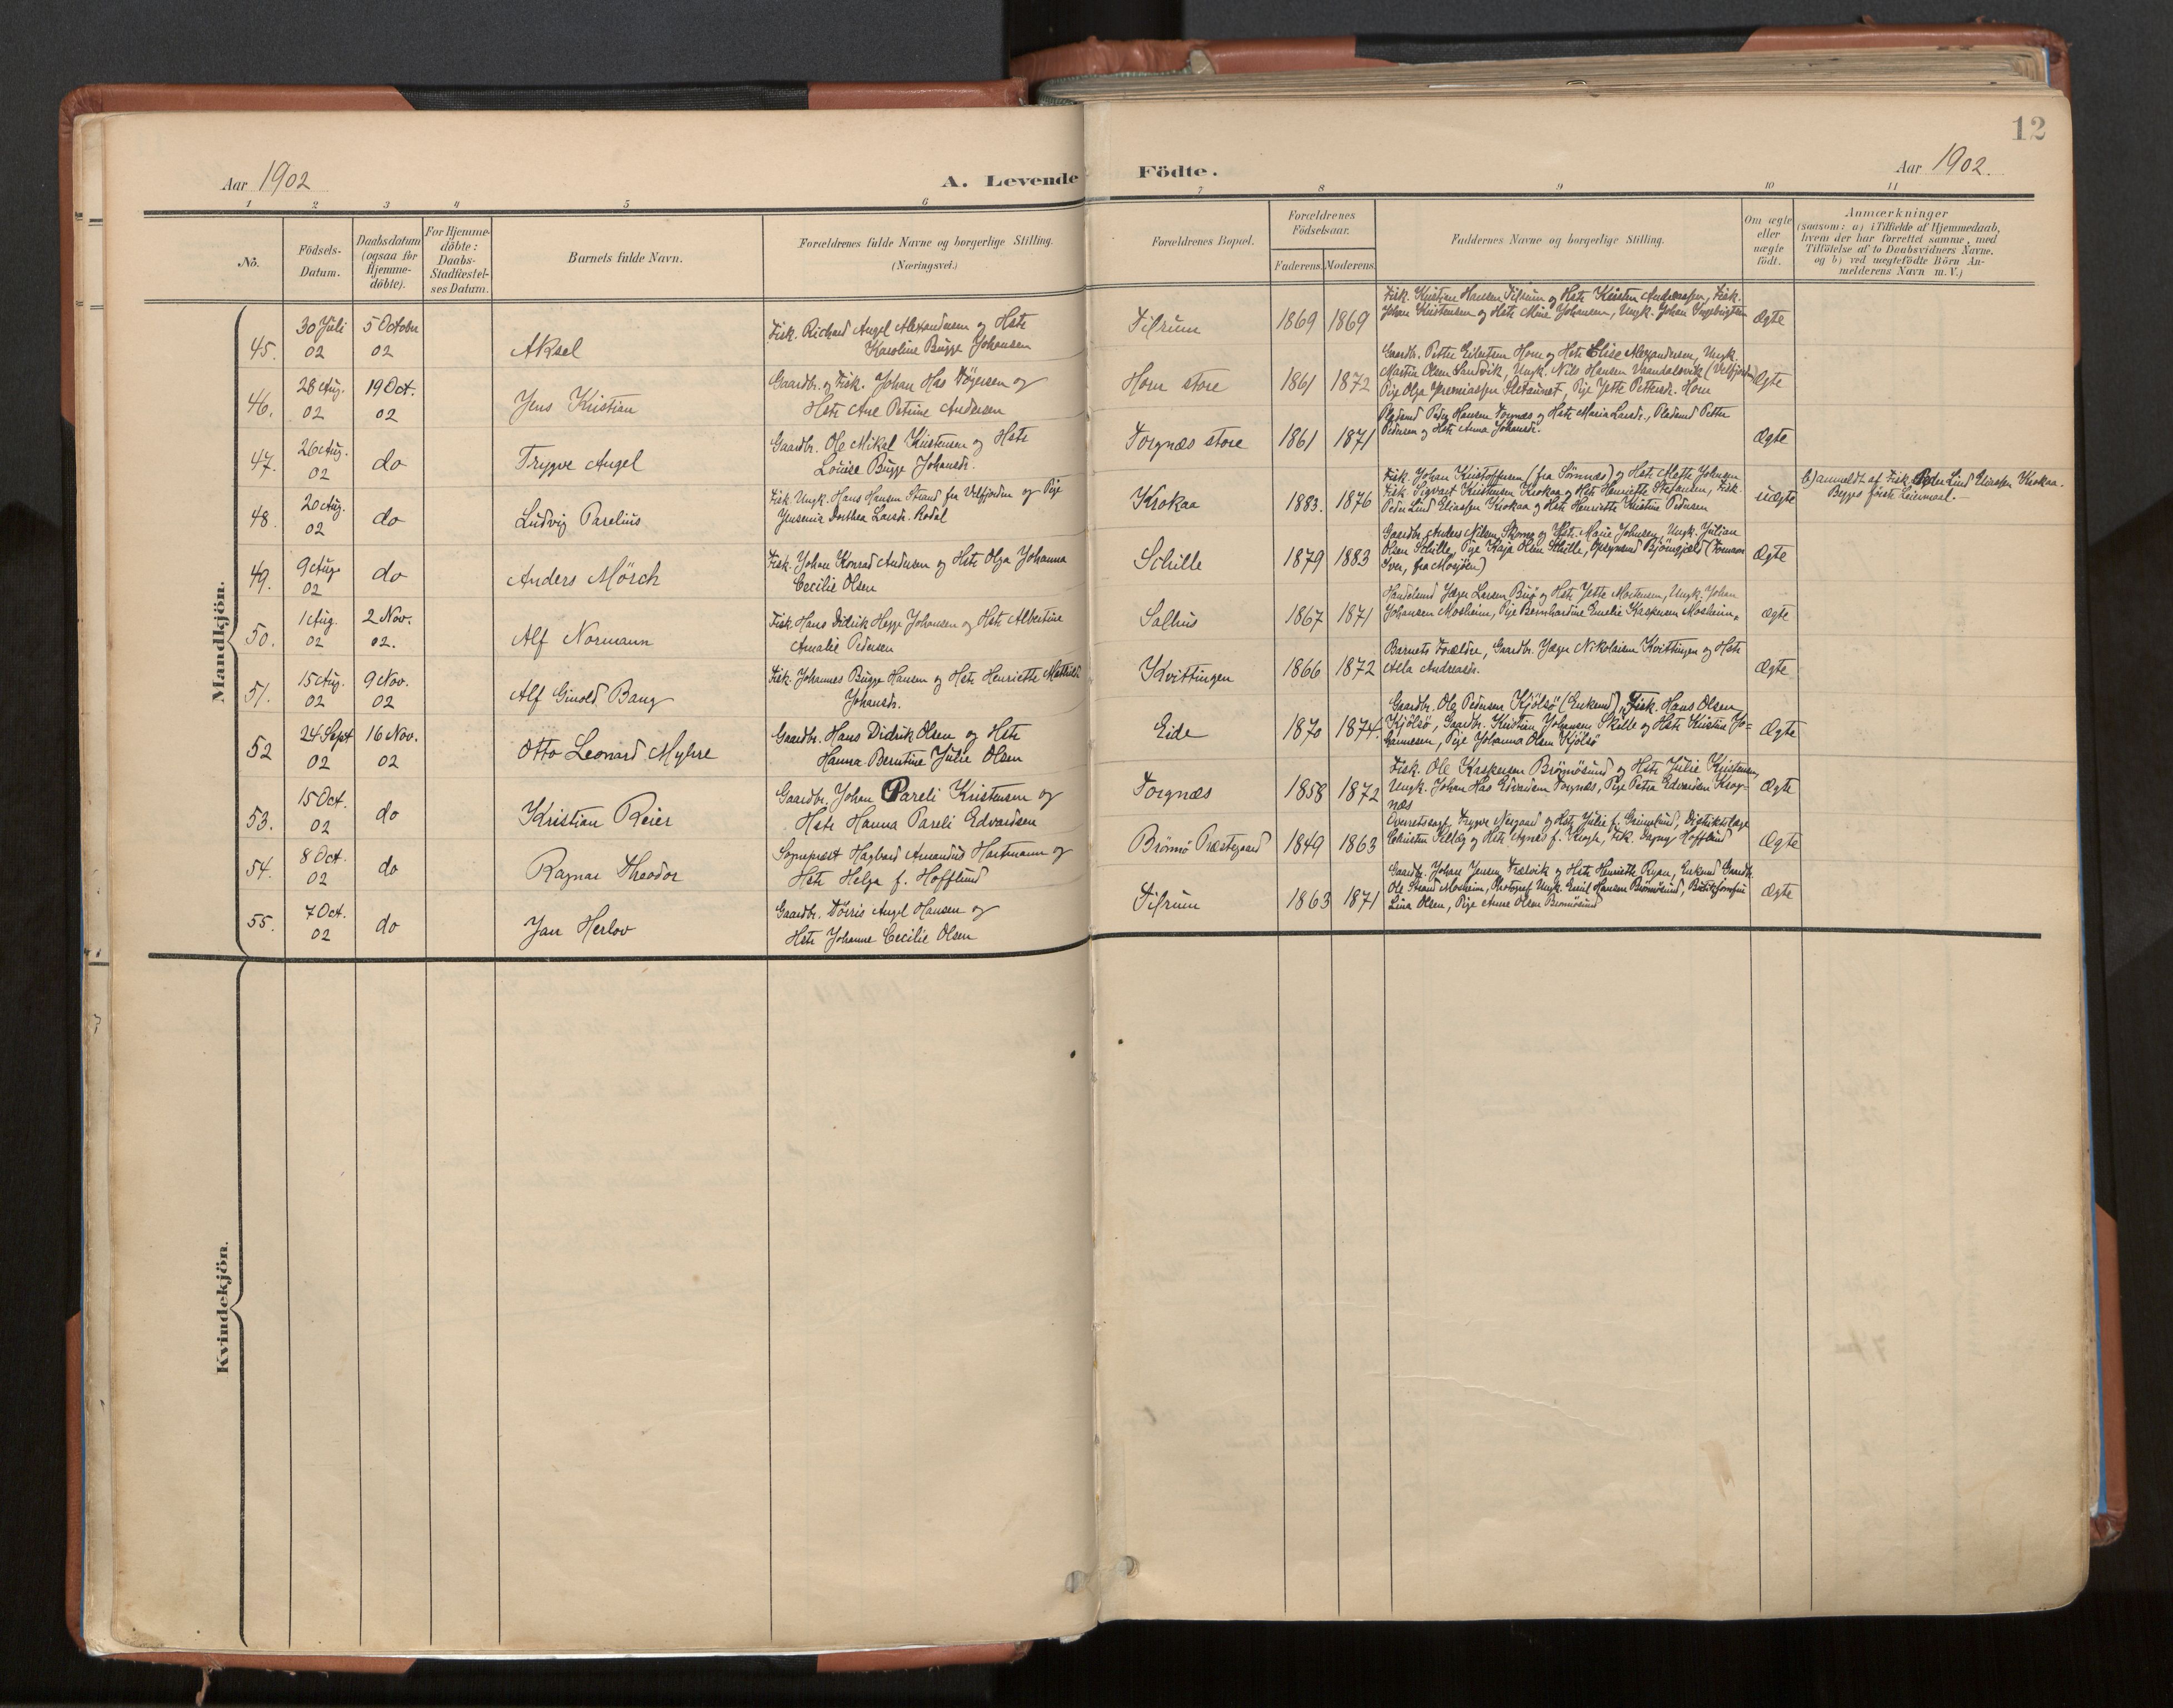 12
Aar 1902
A. Levende Födte.
Aar 1902.
1 2 3 4 5 6 7 8 9 10 11
No.
Födsels-
Datum.
Daabsdatum
(ogsaa for
Hjemme-
döbte).
For Hjemme-
döbte:
Daabs-
Stadfæstel-
ses Datum.
Barnets fulde Navn.
Forældrenes fulde Navne og borgerlige Stilling.
(Næringsvei.)
Forældrenes Bopæl.
Forældrenes
Födselsaar.
Faderens. Moderens.
Faddernes Navne og borgerlige Stilling.
Om ægte
eller
uægte
födt.
Anmærkninger
(saasom: a) i Tilfælde af Hjemmedaab,
hvem der har forrettet samme, med
Tilföielse af to Daabsvidners Navne.
og b) ved uægtefödte Börn An-
melderens Navn m. V.)
Mandkjön.
45.
30 Juli
02
5 Octobr
02
Aksel
Fisk. Richard Angel Alexandersen og Hstr
Karoline Bugge Johansen
Tilrum
1869 1869
Fisk. Kristian Hansen Tilrum og Hstr Kirsten Andreassen, Fisk.
Johan Kristensen og Hstr Mine Johansen, Ungk. Johan Ingebrigtsen
Ægte
46.
28 Aug.
02
19 Oct.
02
Jens Kristian
Gaardbr. og Fisk. Johan Has Tögersen og
Hstr Ane Petrine Andersen
Horn store
1861 1872
Gaardbr. Petter Eilertsen Horn og Hstr Elise Alexandersen, Ungk.
Martin Olsen Sandvik, Ungk. Nils Hansen Vaandalsvik (Velfjorden)
Pige Olga Jeremiassen Sletaunet, Pige Jette Pettersdr. Horn
Ægte
47.
26 Aug.
02
do
Trygve Angel
Gaardbr. Ole Mikal Kristensen og Hstr
Louise Bugge Johansdr.
Torgnæs store
1861 1871
Pladsmd Peder Hansen Torgnæs og Hstr Maria Larsdr., Pladsmd Petter
Pedersen og Hstr Anna Johansdr.
Ægte
48.
20 Aug.
02
do
Ludvig Parelius
Fisk. Ungk. Hans Hansen Strand fra Velfjorden og Pige
Jensenia Dorthea Larsdr. Rodal
Krokaa
1883. 1876
Fisk. Johan Kristoffersen (fra Sömnæs) og Hstr Mette Johnsen
Fisk. Sigvart Kristensen Krokaa og Hstr Henriette Stefansen, Fisk.
Peder Lind Eliassen Krokaa og Hstr Henriette Kristine Pedersen
uægte
b) anmeldt af Fisk. Peder Lind Eliassen Krokaa.
Begges förste Leiermaal.
49.
9 Aug.
02
do
Anders Mörch
Fisk. Johan Konrad Andersen og Hstr Olga Johanna
Cecilie Olsen
Schille
1879 1883
Gaardbr. Anders Nilsen Skomo og Hstr. Marie Johnsen, Ungk. Julian
Olsen Schille, Pige Kaja Olsen Schille, Opsynsmd Björnsfjeld (Fornavn
Iver, fra Mosjöen)
Ægte
50.
1 Aug.
02
2 Nov.
02.
Alf Normann
Fisk. Hans Didrik Hegge Johansen og Hstr Albertine
Amalie Pedersen
Salhus
1867 1871
Handelsmd Jæger Larsen Buö og Hstr Jette Mortensen, Ungk. Johan
Johansen Mosheim, Pige Bernhardine Emelie Kaspersen Mosheim.
ægte
51.
15 Aug.
02
9 Nov.
02
Alf Ginold Bang
Fisk. Johannes Bugge Hansen og Hstr Henriette Mathilde
Johansdr.
Kvittingen
1866 1872
Barnets Forældre, Gaardbr. Jæger Nikolaisen Kvittingen og Hstr
Alla Andreasdr.
Ægte
52
24 Sept
02
16 Nov.
02
Otto Leonard Myhre
Gaardbr. Hans Didrik Olsen og Hstr
Hanna Berntine Julie Olsen
Eide
1870 1874.
Gaardbr. Ole Pedersen Kjölsö (Enkemd), Fisk. Hans Olsen
Kjölsö, Gaardbr. Kristian Johansen Skille og Hstr Kristine Jo-
hannesen, Pige Johanna Olsen Kjölsö
Ægte
53.
15 Oct.
02
do
Kristian Reier
Gaardbr. Johan Pareli Kristensen og
Hstr Hanna Pareli Edvardsen
Torgnæs
1858 1872
Fisk. Ole Kaspersen Brönnösund og Hstr Julie Kristensen,
Ungk. Johan Has Edvardsen Torgnæs, Pige Petra Edvardsen Krog-
næs
Ægte
54.
8 Oct.
02
do
Ragnar Theodor
Sognepræst Hagbard Amandus Hartmann og
Hstr Helga f. Hofflund
Brönnö Præstegaard
1849 1863
Overretssagf. Trygve Nergaard og Hstr Julie f. Grönlund, Distriktslæge
Christen Kellög og Hstr Agnes f. Krogh, Frk. Dagny Hofflund
Ægte
55.
7 Oct.
02
do
Jan Herlov
Gaardbr. Törris Angel Hansen og
Hstr Johanne Cecilie Olsen
Tilrum
1863 1871
Gaardbr. Johan Jensen Trælvik og Hstr Henriette Ryan, Enkemd Gaardb.
Ole Strand Mosheim, Photograf Ungk. Emil Hansen Brönnösund,
Lina Olsen, Pige Anne Olsen Brönnösund
Ægte
Kvindekjön.